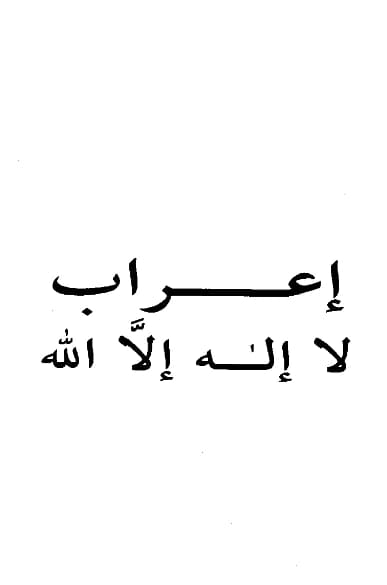 إعـــراب
لا إلـٰـه إلَّا الله